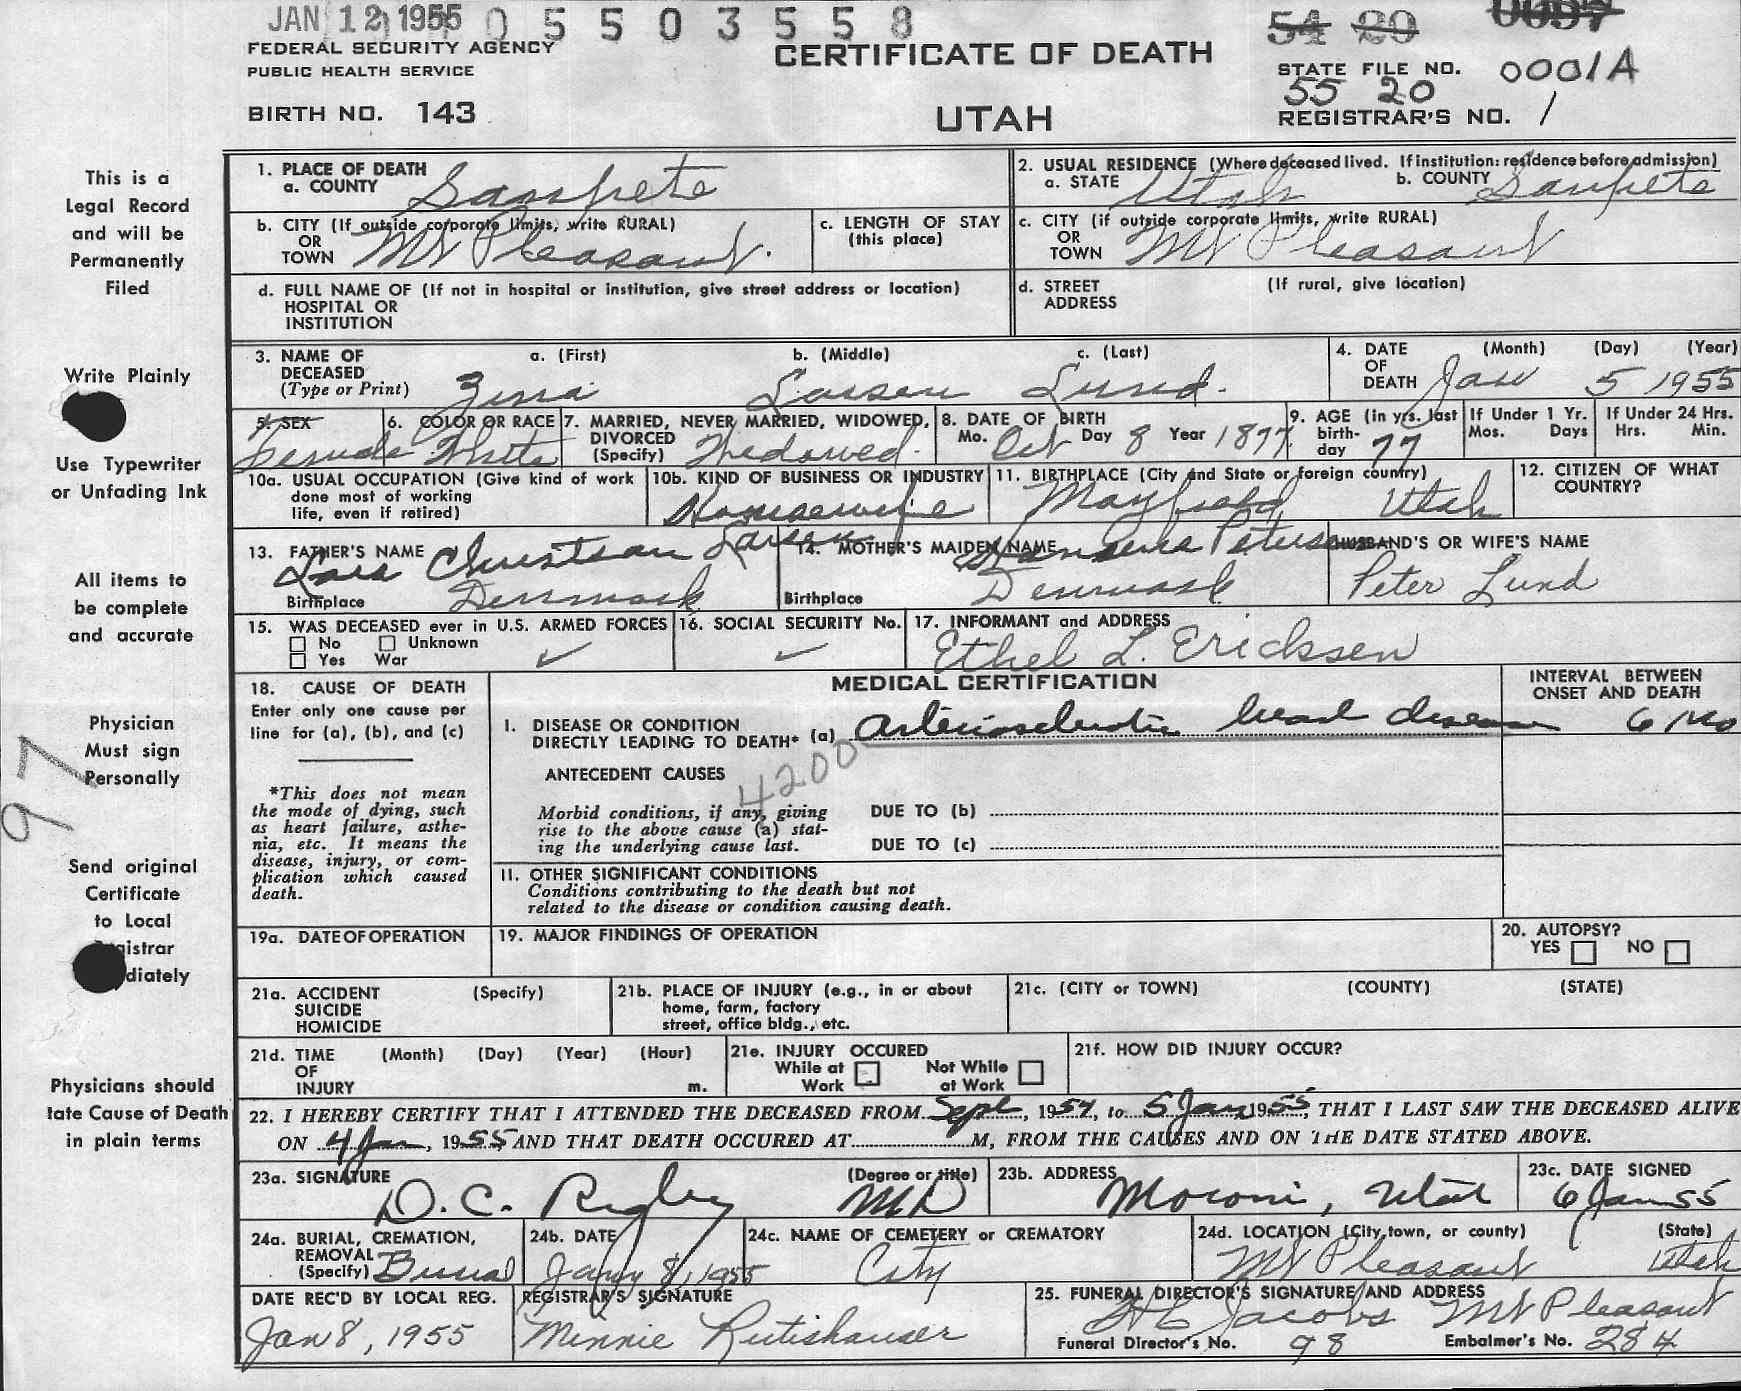 JAN 12 1955 0 5 5 0 3 5 5 8
54 20 0057
FEDERAL SECURITY AGENCY
PUBLIC HEALTH SERVICE
CERTIFICATE OF DEATH
STATE FILE NO. 0001A
55 20
BIRTH NO. 143
UTAH
REGISTRAR'S NO. 1
This is a
Legal Record
and will be
Permanently
Filed
Write Plainly
Use Typewriter
or Unfading Ink
All items to
be complete
and accurate
Physician
Must sign
Personally
97
Send original
Certificate
to Local
gistrar
diately
Physicians should
tate Cause of Death
in plain terms
1. PLACE OF DEATH
a. COUNTY Sanpete
2. USUAL RESIDENCE (Where deceased lived. If institution: residence before admission)
a. STATE Utah b. COUNTY Sanpete
b. CITY (If outside corporate limits, write RURAL)
OR
TOWN Mt Pleasant.
c. LENGTH OF STAY
(this place)
c. CITY (if outside corporate limits, write RURAL)
OR
TOWN Mt Pleasant
d. FULL NAME OF (If not in hospital or institution, give street address or location)
HOSPITAL OR
INSTITUTION
d. STREET (If rural, give location)
ADDRESS
3. NAME OF DECEASED (Type or Print)
a. (First) b. (Middle) c. (Last)
Zina Larsen Lund.
4. DATE OF DEATH (Month) (Day) (Year)
Jan 5 1955
5. SEX
Female
6. COLOR OR RACE
White
7. MARRIED, NEVER MARRIED, WIDOWED,
DIVORCED
(Specify) Widowed.
8. DATE OF BIRTH
Mo. Oct Day 8 Year 1877
9. AGE (in yrs. last
birth-
day 77
If Under 1 Yr.
Mos. Days
If Under 24 Hrs.
Hrs. Min.
10a. USUAL OCCUPATION (Give kind of work
done most of working
life, even if retired)
10b. KIND OF BUSINESS OR INDUSTRY
Housewife
11. BIRTHPLACE (City and State or foreign country)
Mayfield Utah
12. CITIZEN OF WHAT
COUNTRY?
13. FATHER'S NAME Lars Christian Larsen
Birthplace Denmark
14. MOTHER'S MAIDEN NAME Petersen
Birthplace Denmark
HUSBAND'S OR WIFE'S NAME
Peter Lund
15. WAS DECEASED ever in U.S. ARMED FORCES
No Unknown
Yes War ✓
16. SOCIAL SECURITY No.
✓
17. INFORMANT and ADDRESS
Ethel L. Ericksen
18. CAUSE OF DEATH
Enter only one cause per
line for (a), (b), and (c)
*This does not mean
the mode of dying, such
as heart failure, asthe-
nia, etc. It means the
disease, injury, or com-
plication which caused
death.
MEDICAL CERTIFICATION
INTERVAL BETWEEN
ONSET AND DEATH
I. DISEASE OR CONDITION
DIRECTLY LEADING TO DEATH* (a) Arteriosclerotic heart disease 6 Mo
ANTECEDENT CAUSES
4200
Morbid conditions, if any, giving
rise to the above cause (a) stat-
ing the underlying cause last.
DUE TO (b)
DUE TO (c)
II. OTHER SIGNIFICANT CONDITIONS
Conditions contributing to the death but not
related to the disease or condition causing death.
19a. DATE OF OPERATION
19. MAJOR FINDINGS OF OPERATION
20. AUTOPSY?
YES NO
21a. ACCIDENT (Specify)
SUICIDE
HOMICIDE
21b. PLACE OF INJURY (e.g., in or about
home, farm, factory
street, office bldg., etc.
21c. (CITY or TOWN) (COUNTY) (STATE)
21d. TIME (Month) (Day) (Year) (Hour)
OF
INJURY m.
21e. INJURY OCCURED
While at Work Not While at Work
21f. HOW DID INJURY OCCUR?
22. I HEREBY CERTIFY THAT I ATTENDED THE DECEASED FROM Sept, 1954, to 5 Jan 1955, THAT I LAST SAW THE DECEASED ALIVE
ON 4 Jan, 1955 AND THAT DEATH OCCURED AT M, FROM THE CAUSES AND ON THE DATE STATED ABOVE.
23a. SIGNATURE (Degree or title)
D. C. Rigby MD
23b. ADDRESS
Moroni, Utah
23c. DATE SIGNED
6 Jan 55
24a. BURIAL, CREMATION,
REMOVAL
(Specify) Burial
24b. DATE
Jany 8, 1955
24c. NAME OF CEMETERY or CREMATORY
City
24d. LOCATION (City, town, or county) (State)
Mt Pleasant Utah
DATE REC'D BY LOCAL REG.
Jan 8, 1955
REGISTRAR'S SIGNATURE
Minnie Rutishauser
25. FUNERAL DIRECTOR'S SIGNATURE AND ADDRESS
Jacobs Mt Pleasant
Funeral Director's No. 98 Embalmer's No. 284